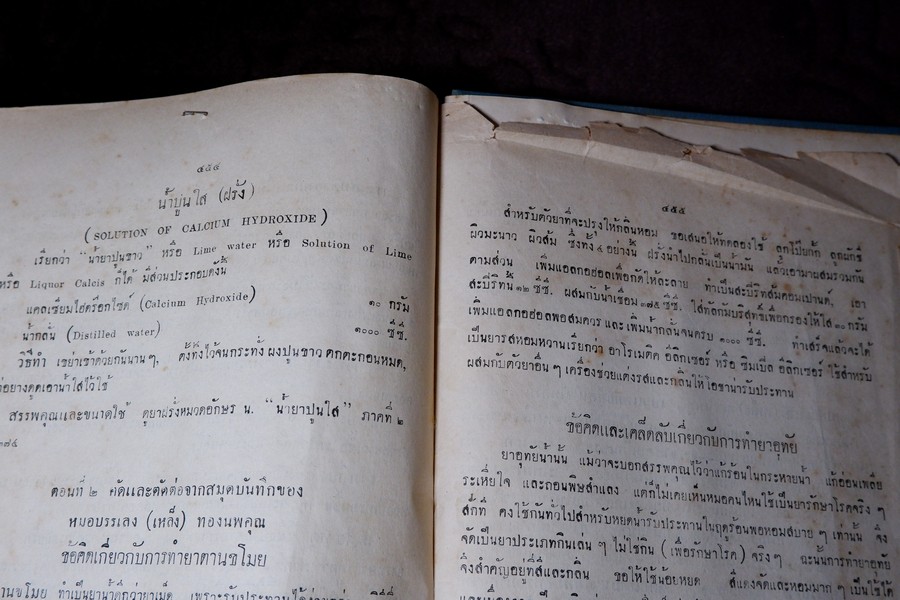 ๔๕๔
น้ำปูนใส (ฝรั่ง)
(SOLUTION OF CALCIUM HYDROXIDE)
เรียกว่า "น้ำยาปูนขาว" หรือ Lime water หรือ Solution of Lime
หรือ Liquor Calcis ก็ได้ มีส่วนประกอบดังนี้
แคลเซียมไฮด๊รอกไซด์ (Calcium Hydroxide) ๑๐ กรัม
น้ำกลั่น (Distilled water) ๑๐๐๐ ซี.ซี.
วิธีทำ เขย่าเข้าด้วยกันนาน ๆ, ตั้งทิ้งไว้จนกระทั่งผงปูนขาวตกตะกอนหมด,
ค่อยางดูดเอาน้ำใสไว้ใช้
สรรพคุณและขนาดใช้ ดูยาฝรั่งหมวดอักษร น. "น้ำยาปูนใส" ภาคที่ ๒
ตอนที่ ๒ คัดและตัดต่อจากสมุดบันทึกของ
หมอบรรเลง (เหล็ง) ทองนพคุณ
ข้อคิดเกี่ยวกับการทำยาตานขโมย
ตานขโมย ทำเป็นยาน้ำดีกว่ายาเม็ด เพราะรับประทานได้ง่าย
๔๕๕
สำหรับตัวยาที่จะปรุงให้กลิ่นหอม ขอเสนอให้ทดลองใช้ ลูกโป๊ยกั๊ก ลูกผักชี
ผิวมะนาว ผิวส้ม ซึ่งทั้ง ๔ อย่างนี้ ฝรั่งนำไปกลั่นเป็นน้ำมัน แล้วเอามาผสมรวมกัน
ตามส่วน เพิ่มแอลกอฮอลเพื่อกัดให้ละลาย ทำเป็นสะบีริทส้มคอมเปานด์, เอา
สะบีริทนี้ ๑๒ ซี.ซี. ผสมกับน้ำเชื่อม ๓๗๕ ซี.ซี. ใส่ทัลกัมบริสุทธิ์เพื่อกรองให้ใส ๓๐ กรัม
เพิ่มแอลกอฮอลพอสมควร และเพิ่มน้ำกลั่นจนครบ ๑๐๐๐ ซี.ซี. ทำเสร็จแล้วจะได้
เป็นยารสหอมหวานเรียกว่า อาโรเมติค อีลิกเซอร์ หรือ ซิมเปิ้ล อีลิกเซอร์ ใช้สำหรับ
ผสมกับตัวยาอื่น ๆ เครื่องช่วยแต่งรสและกลิ่นให้โอชาน่ารับประทาน
ข้อคิดและเคล็ดลับเกี่ยวกับการทำยาอุทัย
ยาอุทัยน้ำนั้น แม้ว่าจะบอกสรรพคุณไว้ว่าแก้ร้อนในกระหายน้ำ แก้อ่อนเพลีย
ระเหี่ยใจ และถอนพิษสำแลง แต่ก็ไม่เคยเห็นหมอคนไหนใช้เป็นยารักษาโรคจริง ๆ
สักที คงใช้กันทั่วไปสำหรับหยดน้ำรับประทานในฤดูร้อนพอหอมสบาย ๆ เท่านั้น จึง
จัดเป็นยาประเภทกินเล่น ๆ ไม่ใช่กิน (เพื่อรักษาโรค) จริง ๆ ฉะนั้นการทำยาอุทัย
จึงสำคัญอยู่ที่สีและกลิ่น ขอให้ใช้น้อยหยด สีแดงจัดและหอมมาก ๆ เป็นใช้ได้